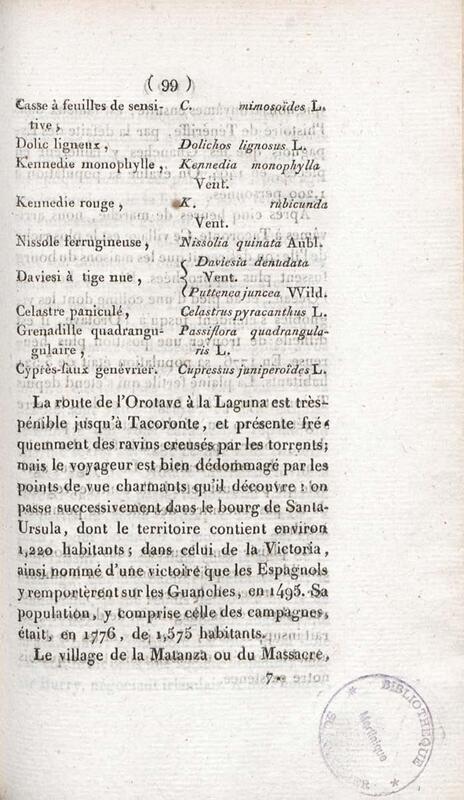 ( 99 )
Casse à feuilles de sensi- C. mimosoïdes L.
tive ;
Dolic ligneux , Dolichos lignosus L.
Kennedie monophylle , Kennedia monophylla
Vent.
Kennedie rouge , K. rubicunda
Vent.
Nissole ferrugineuse , Nissolia quinata Aubl.
Daviesia denudata
Daviesi à tige nue , { Vent.
Puttenea juncea Wild.
Celastre paniculé , Celastrus pyracanthus L.
Grenadille quadrangu- Passiflora quadrangula-
gulaire , ris L.
Cyprès-faux genévrier. Cupressus juniperoïdes L.
La route de l'Orotave à la Laguna est très-
pénible jusqu'à Tacoronte, et présente fré-
quemment des ravins creusés par les torrents;
mais le voyageur est bien dédommagé par les
points de vue charmants qu'il découvre : on
passe successivement dans le bourg de Santa-
Ursula, dont le territoire contient environ
1,220 habitants ; dans celui de la Victoria ,
ainsi nommé d'une victoire que les Espagnols
y remportèrent sur les Guanches, en 1495. Sa
population, y comprise celle des campagnes,
était, en 1776, de 1,575 habitants.
Le village de la Matanza ou du Massacre,
7.
BIBLIOTHÈQUE
Martinique